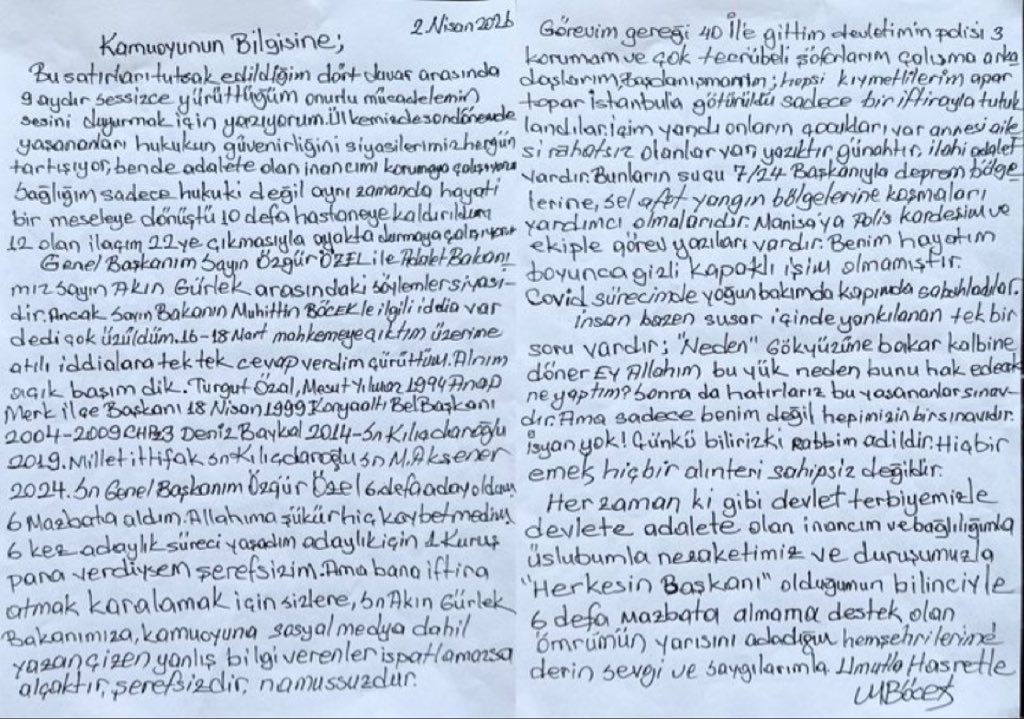 2 Nisan 2026
Kamuoyunun Bilgisine;
Bu satırları tutsak edildiğim dört duvar arasında
9 aydır sessizce yürüttüğüm onurlu mücadelemin
sesini duyurmak için yazıyorum. Ülkemizde son dönemde
yaşananları hukukun güvenirliğini siyasilerimiz hergün
tartışıyor, bende adalete olan inancımı korumaya çalışıyorum
Sağlığım sadece hukuki değil aynı zamanda hayati
bir meseleye dönüştü 10 defa hastaneye kaldırıldım
12 olan ilaçım 22 ye çıkmasıyla ayakta durmaya çalışıyorum
Genel Başkanım Sayın Özgür ÖZEL ile Adalet Bakanı
mız Sayın Akın Gürlek arasındaki söylemler siyasi-
dir. Ancak Sayın Bakanın Muhittin BÖCEK le ilgili iddia var
dedi çok üzüldüm. 16-18 Mart mahkemeye çıktım üzerime
atılı iddialara tek tek cevap verdim çürüttüm. Alnım
açık başım dik. Turgut Özal, Mesut Yılmaz 1994 Anap
Merk ilçe Başkanı 18 Nisan 1999 Konyaaltı Bel Başkanı
2004-2009 CHP Deniz Baykal 2014-Sn Kılıçdaroğlu
2019. Millet ittifak Sn Kılıçdaroğlu Sn M. Akşener
2024. Sn Genel Başkanım Özgür Özel 6 defa aday oldum
6 Mazbata aldım. Allahıma şükür hiç kaybetmedim
6 kez adaylık süreci yaşadım adaylık için 1 Kuruş
para verdiysem şerefsizim. Ama bana iftira
atmak karalamak için sizlere, Sn Akın Gürlek
Bakanımıza, kamuoyuna sosyal medya dahil
yazan çizen yanlış bilgi verenler ispatlamazsa
alçaktır, şerefsizdir, namussuzdur.
Görevim gereği 40 İle gittim devletimin polisi 3
korumam ve çok tecrübeli şoförlarım çalışma arka
daşlarım, Başdanışmanım; hepsi kıymetlilerim apar
topar İstanbul'a götürüldü sadece bir iftirayla tutuk
landılar, içim yandı onların çocukları var annesi aile
si rahatsız olanlar var yazıktır günahtır. ilahi adalet
vardır. Bunların suçu 7/24 Başkanıyla deprem bölge
lerine, sel afet yangın bölgelerine koşmaları
yardımcı olmalarıdır. Manisa'ya Polis kardeşim ve
ekiple görev yazıları vardır. Benim hayatım
boyunca gizli kapaklı işim olmamıştır.
Covid sürecimde yoğun bakımda kapımda sabahladılar.
İnsan bazen susar içinde yankılanan tek bir
soru vardır; "Neden" Gökyüzüne bakar kalbine
döner Ey Allahım bu yük neden bunu hak edecek
ne yaptım? Sonra da hatırlarız bu yaşananlar sınav-
dır. Ama sadece benim değil hepimizin bir sınavıdır.
isyan yok! Çünkü bilirizki Rabbim adildir. Hiçbir
emek hiçbir alınteri sahipsiz değildir.
Her zaman ki gibi devlet terbiyemizle
devlete adalete olan inancım ve bağlılığımla
üslubumla nezaketimiz ve duruşumuzla
"Herkesin Başkanı" olduğumun bilinciyle
6 defa Mazbata almama destek olan
ömrümün yarısını adadığım hemşehrilerime
derin sevgi ve saygılarımla Umutla Hasretle
MBöcek